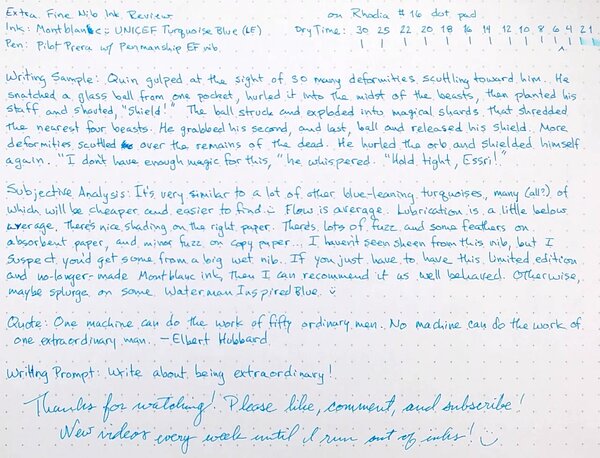 Extra Fine Nib Ink Review on Rhodia #16 dot pad
Ink: Montblanc - UNICEF Turquoise Blue (LE) Dry Time: 30 25 22 20 18 16 14 12 10 8 6 4 2 1
Pen: Pilot Prera w/ Penmanship EF nib.
Writing Sample: Quin gulped at the sight of so many deformities scuttling toward him. He
snatched a glass ball from one pocket, hurled it into the midst of the beasts, then planted his
staff and shouted, "Shield!" The ball struck and exploded into magical shards that shredded
the nearest four beasts. He grabbed his second, and last, ball and released his shield. More
deformities scuttled over the remains of the dead. He hurled the orb and shielded himself
again. "I don't have enough magic for this," he whispered. "Hold tight, Essri!"
Subjective Analysis: It's very similar to a lot of other blue-leaning turquoises, many (all?) of
which will be cheaper and easier to find. Flow is average. Lubrication is a little below
average. There's nice shading on the right paper. There's lots of fuzz and some feathers on
absorbent paper, and minor fuzz on copy paper... I haven't seen sheen from this nib, but I
suspect you'd get some from a big wet nib. If you just have to have this limited edition
and no-longer-made Montblanc ink, then I can recommend it as well behaved. Otherwise,
maybe splurge on some Waterman Inspired Blue.
Quote: One machine can do the work of fifty ordinary men. No machine can do the work of
one extraordinary man. - Elbert Hubbard
Writing Prompt: Write about being extraordinary!
Thanks for watching! Please like, comment, and subscribe!
New videos every week until I run out of inks!